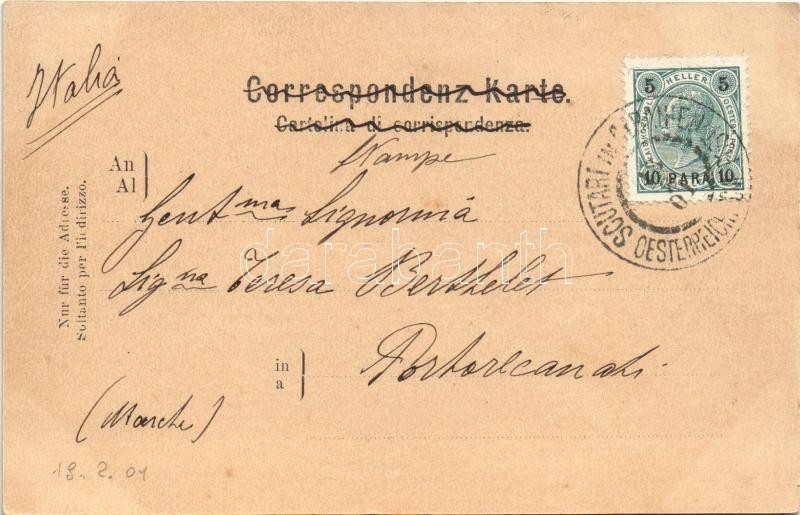 Italia
Correspondenz-Karte.
Cartolina di corrispondenza.
Stampe
An
Al
Gent ma Signorina
Sig na Teresa Berthelet
in
a
Portorecanati
(Marche)
19. 2. 01
Nur für die Adresse.
Soltanto per l'indirizzo.
5 HELLER 5
10 PARA 10
SCUTARI IN
OESTERREICH
darabanth